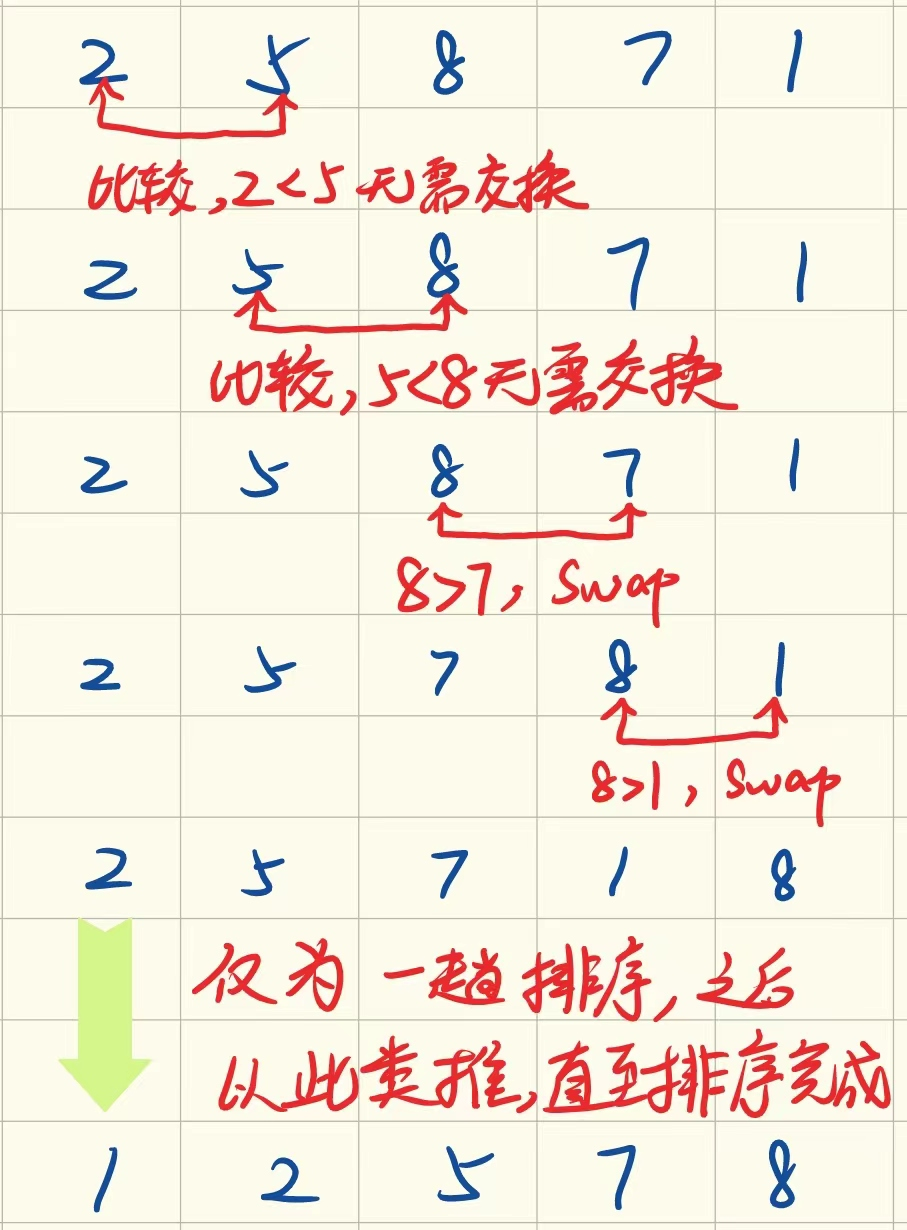 2 5 8 7 1
比较,2<5无需交换
2 5 8 7 1
比较,5<8无需交换
2 5 8 7 1
8>7, Swap
2 5 7 8 1
8>1, Swap
2 5 7 1 8
仅为一趟排序,之后
以此类推,直至排序完成
1 2 5 7 8